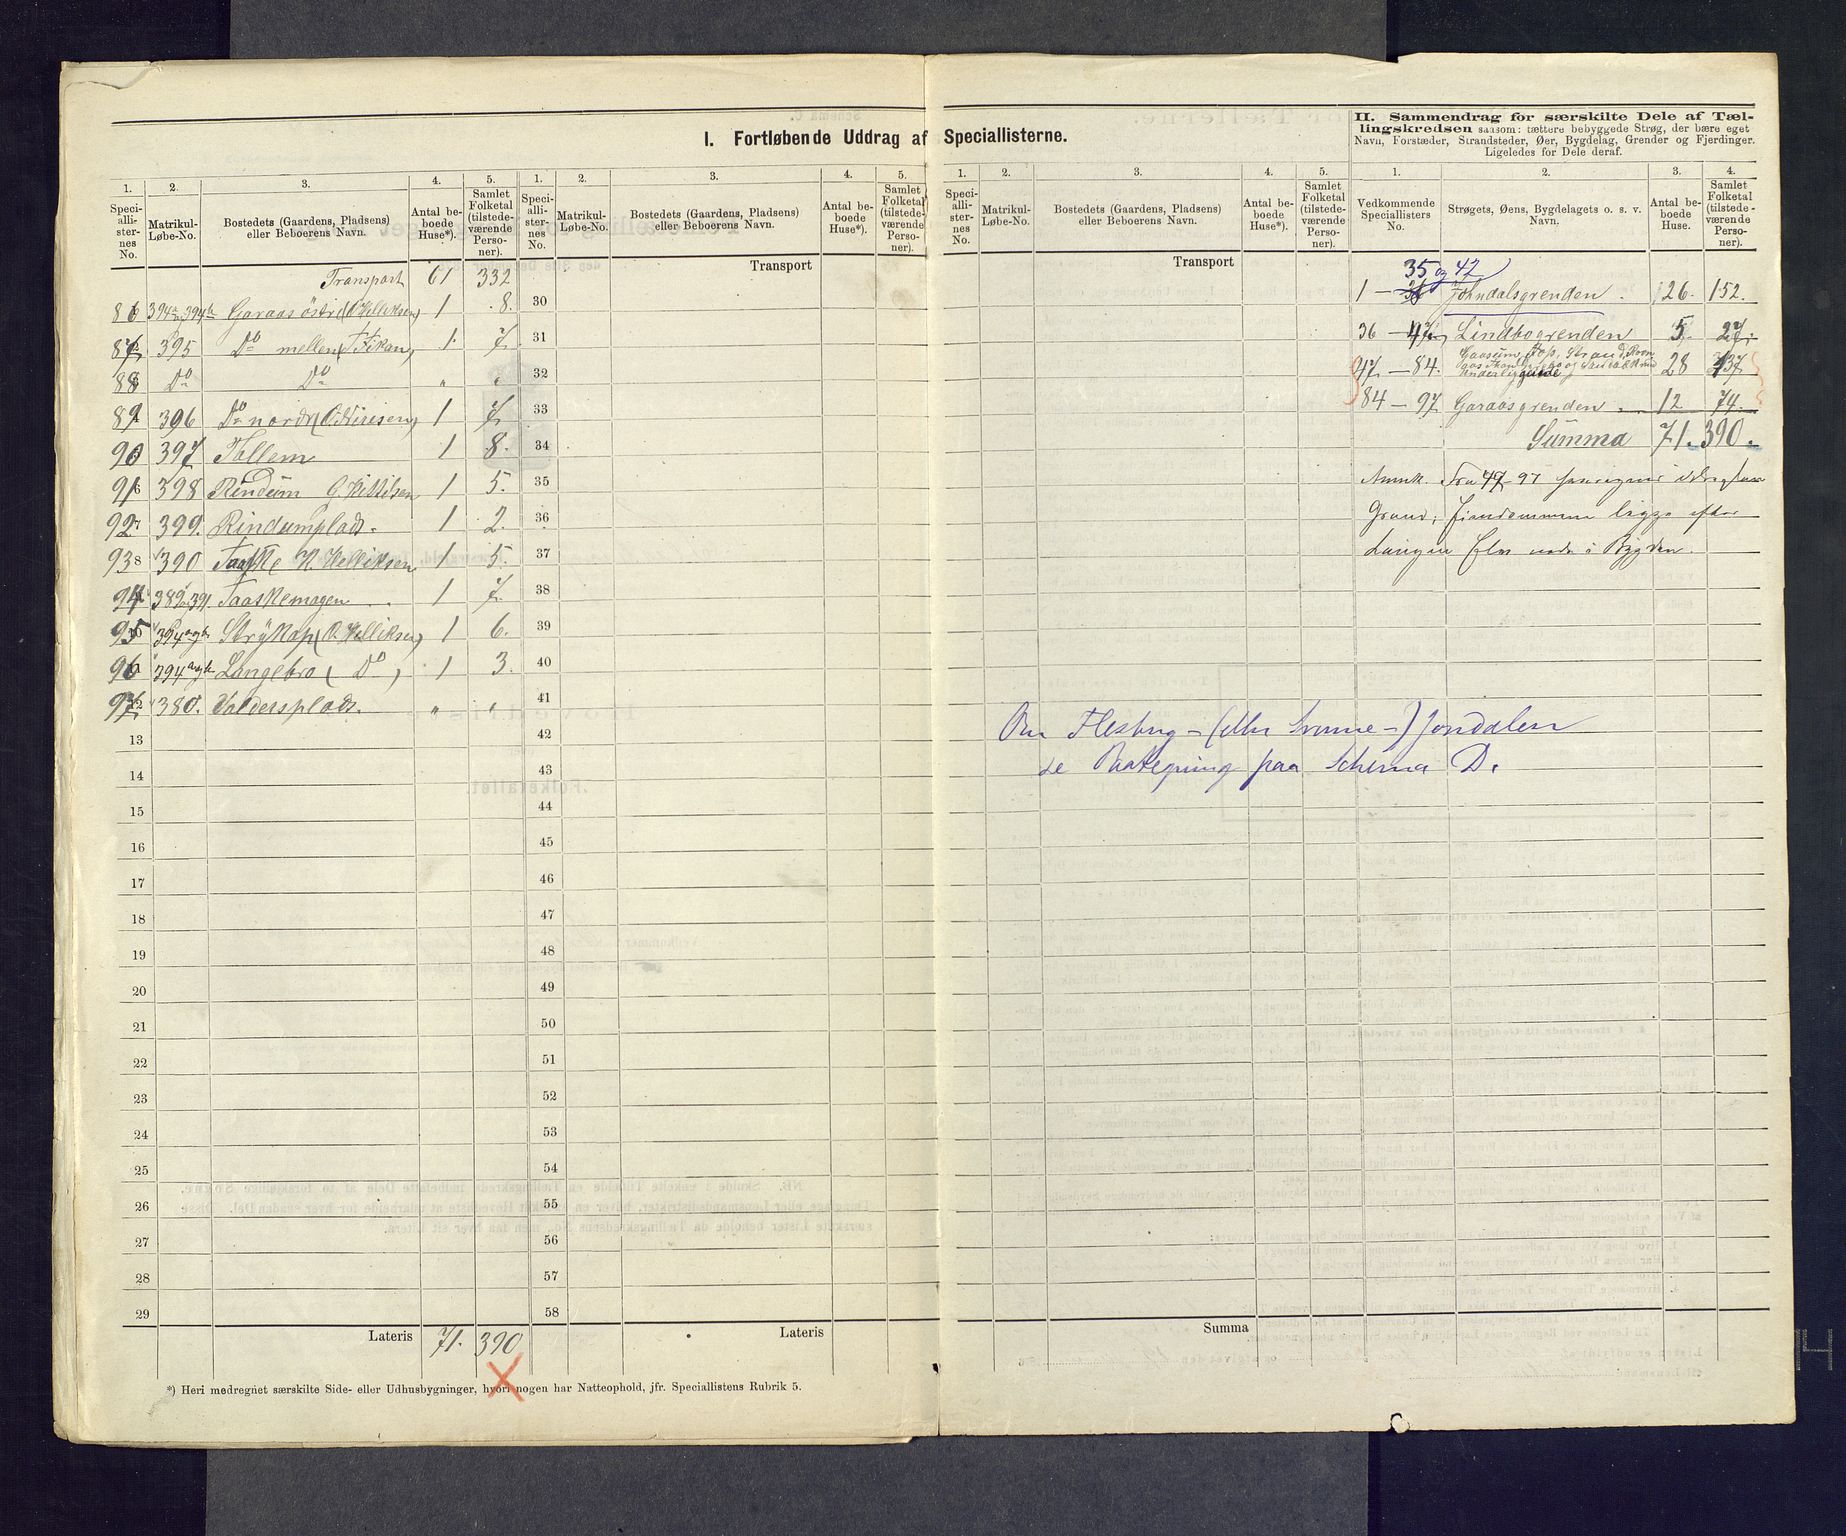 I. Fortløbende Uddrag af Speciallisterne.
1. 2. 3. 4. 5. 1. 2. 3. 4. 5.
Speciallisternes No. Matrikul-Løbe-No. Bostedets (Gaardens, Pladsens) eller Beboerens Navn. Antal beboede Huse*). Samlet Folketal (tilstedeværende Personer).
Speciallisternes No. Matrikul-Løbe-No. Bostedets (Gaardens, Pladsens) eller Beboerens Navn. Antal beboede Huse*). Samlet Folketal (tilstedeværende Personer).
Transport 61 332
86 394a 394b Garaas östre (O. Helliksen) 1 8.
87 395 Do mellem 1 7
88 Do Do " "
89 396 Do nordr 1 7
90 397 Tollem 1 8.
91 398 Rindum O. Kittilsen 1 5.
92 399. Rindumplads. 1 2.
93 390 Taaske H. Helliksen 1 5.
94 389 391. Taaskemagen 1 7.
95 394 a og b Strykap (O. Helliksen) 1 6.
96 394 a og b Langebro (Do) 1 3.
97 380. Valdersplads. " "
13
14
15
16
17
18
19
20
21
22
23
24
25
26
27
28
29
Lateris 71. 390
*) Heri medregnet særskilte Side- eller Udhusbygninger, hvori nogen har Natteophold, jfr. Speciallistens Rubrik 5.
Transport
30
31
32
33
34
35
36
37
38
39
40
41
42
43
44
45
46
47
48
49
50
51
52
53
54
55
56
57
58
Lateris
1. 2. 3. 4. 5.
Speciallisternes No. Matrikul-Løbe-No. Bostedets (Gaardens, Pladsens) eller Beboerens Navn. Antal beboede Huse*). Samlet Folketal (tilstedeværende Personer).
Transport
Om Flesberg- (eller Svenne-) Jondalen
se Paategning paa Schema D.
Summa
II. Sammendrag for særskilte Dele af Tæl-
lingskredsen saasom: tættere bebyggede Strøg, der bære eget
Navn, Forstæder, Strandsteder, Øer, Bygdelag, Grender og Fjerdinger.
Ligeledes for Dele deraf.
1. 2. 3. 4.
Vedkommende Speciallisters No. Strøgets, Øens, Bygdelagets o. s. v. Navn. Antal beboede Huse. Samlet Folketal (tilstedeværende Personer).
35 og 42
1 — Johndalsgrenden. 26. 152.
36 — 47 Lindbogrenden 5. 27.
47 — 84. 28 137
84 — 97 Garaasgrenden 12 74.
Summa 71. 390.
Anmk. Fra 47-97
Grand; Eiendommene ligge efter
Langen Elv nede i Bygden.